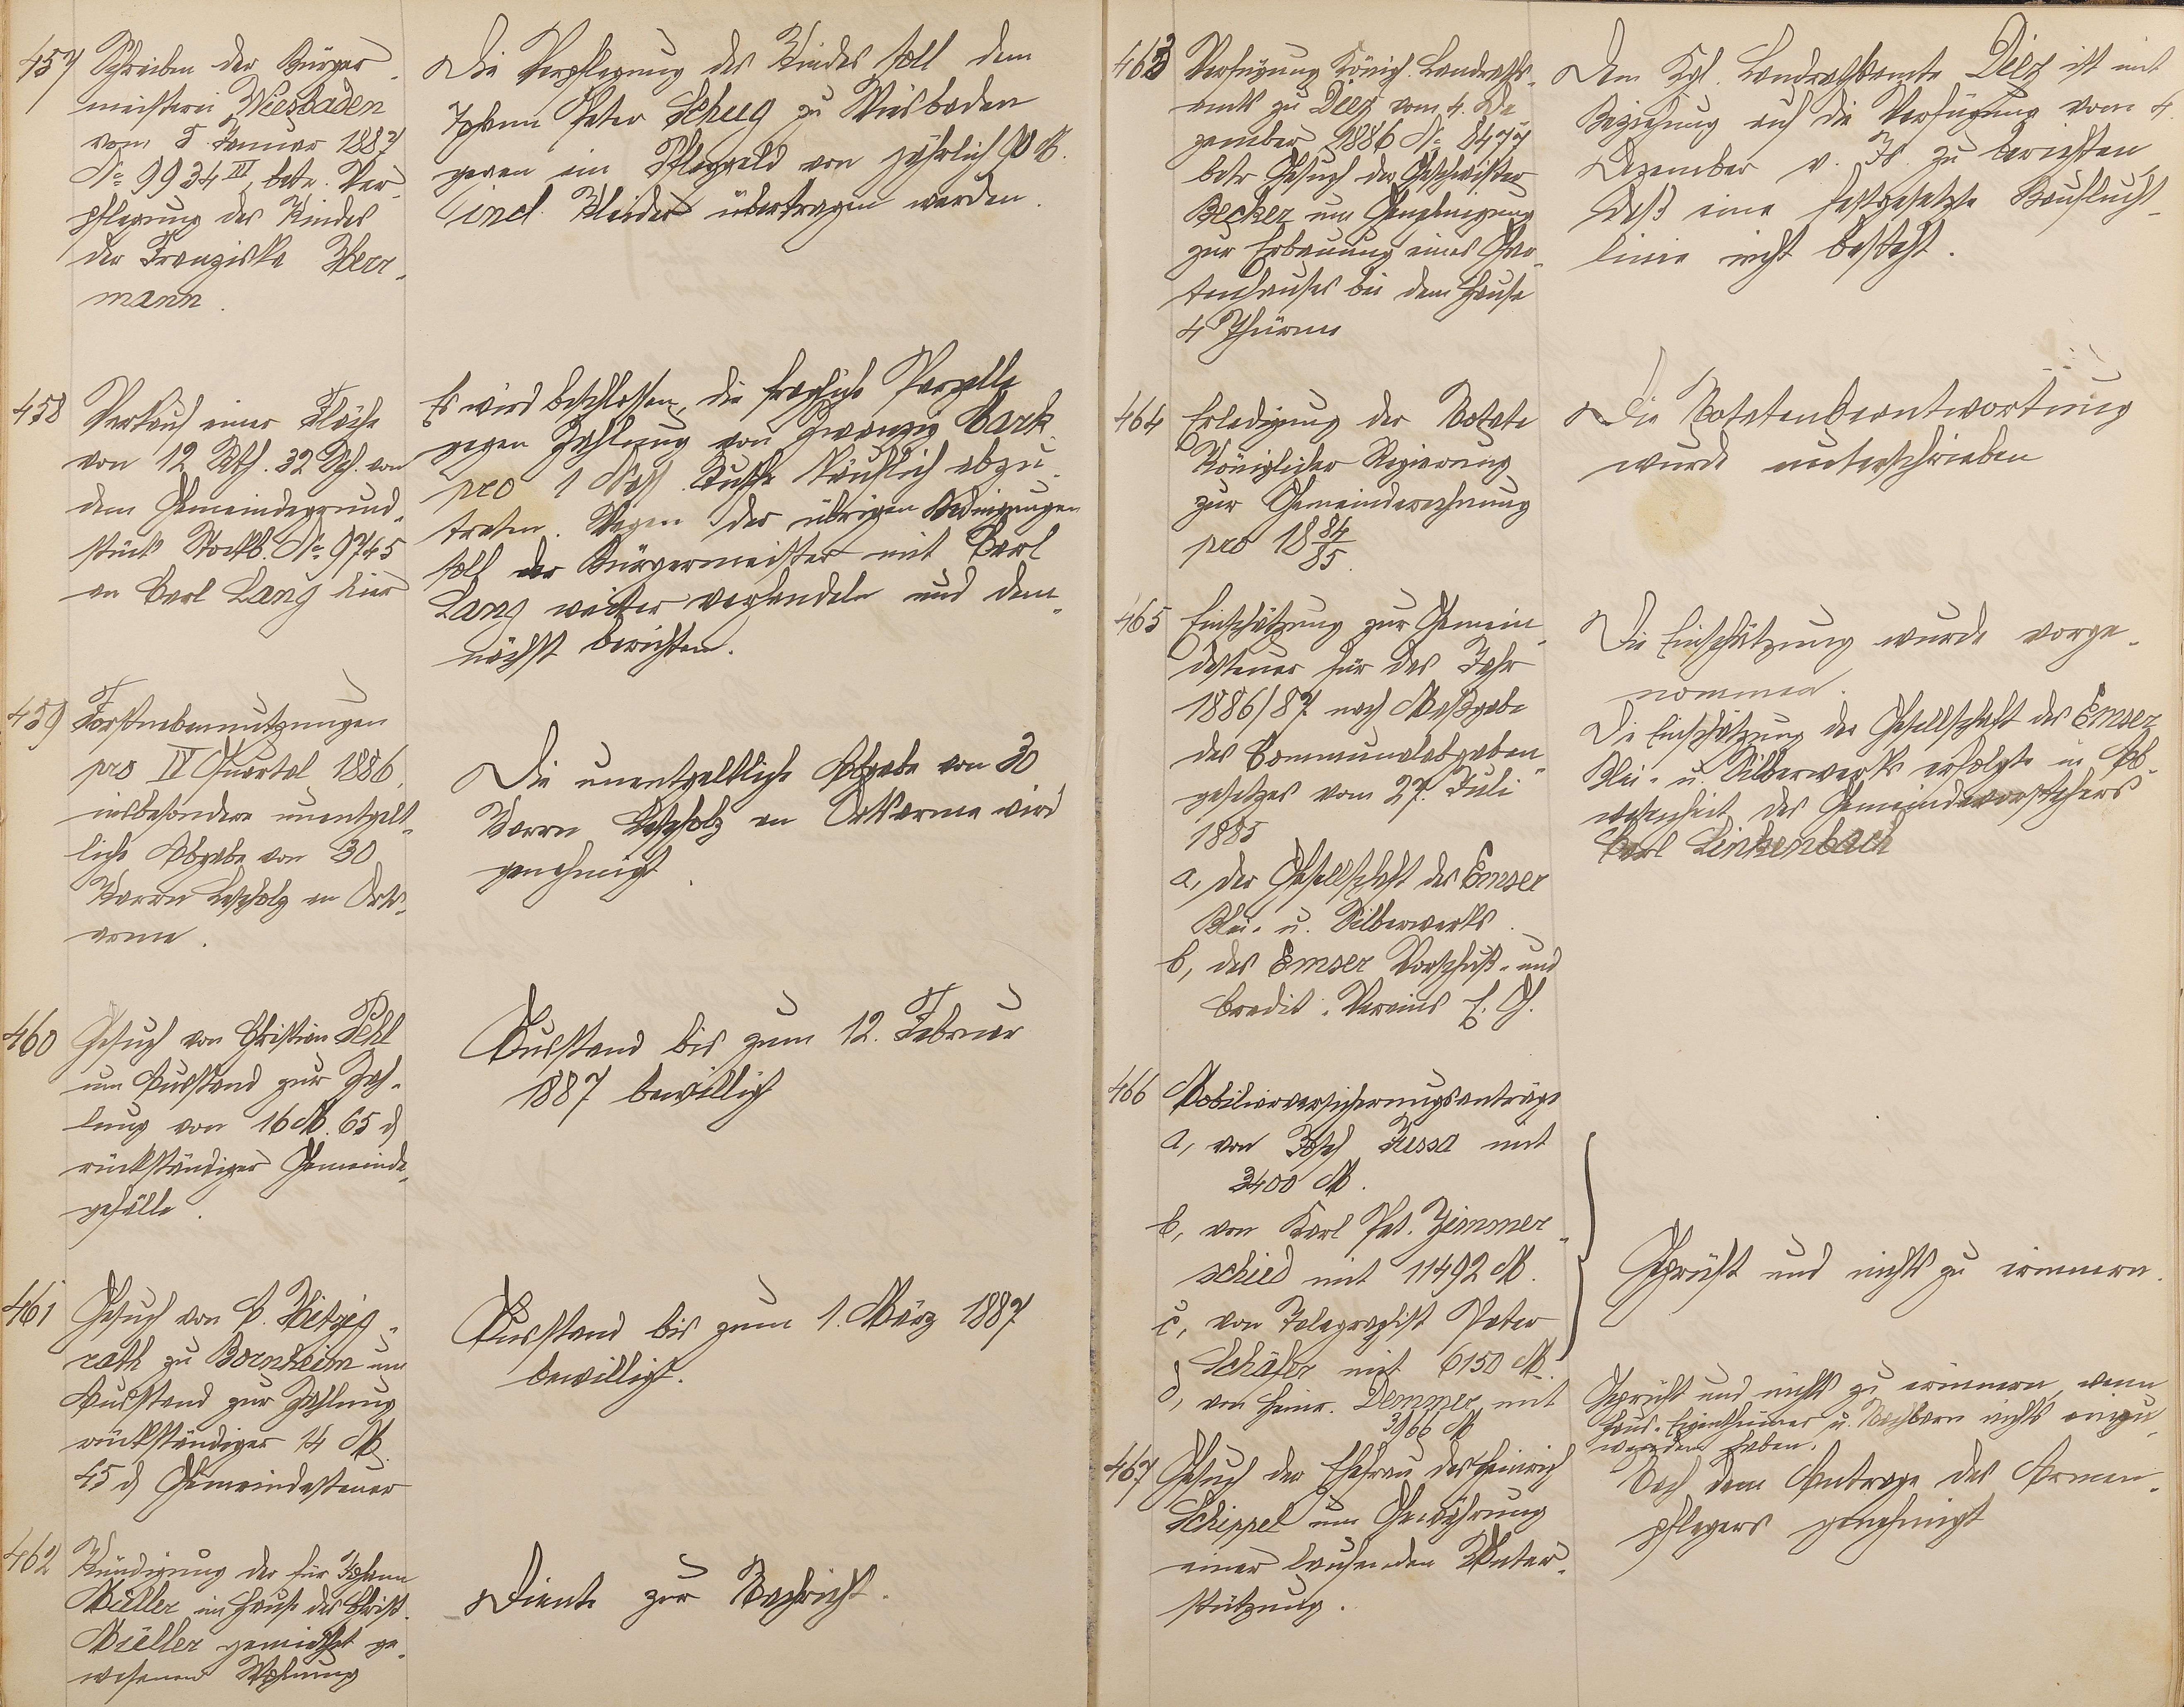 457 Schreiben der Bürger-
meisterei Wiesbaden
vom 5. Januar 1887
No 9934 IV, betr. Ver-
pflegung des Kindes
der Franziska Herr-
mann.
Die Verpflegung des Kindes soll dem
Johann Peter Schug zu Wiesbaden
gegen ein Pflegegeld von jährlich 90 M.
incl. Kleider übertragen werden.
458 Verkauf einer Fläche
von 12 Rth. 32 Sch. von
dem Gemeindegrund-
stück Stockb. No 9745
an Carl Lang hier
Es wird beschlossen, die fragliche Parzelle
gegen Zahlung von Zwanzig Mark
pro 1 Nass. Ruthe käuflich abzu-
treten. Wegen der übrigen Bedingungen
soll der Bürgermeister mit Carl
Lang weiter verhandeln und dem-
nächst berichten.
459 Forstnebennutzungen
pro IV Quartal 1886,
insbesondere unentgelt-
liche Abgabe von 30
Karrn Leseholz an Orts-
arme.
Die unentgeltliche Abgabe von 30
Karrn Leseholz an Ortsarme wird
genehmigt.
460 Gesuch von Christian Fehl
um Ausstand zur Zah-
lung von 16 M. 65 d
rückständiger Gemeinde-
gefälle.
Ausstand bis zum 12. Februar
1887 bewilligt
461 Gesuch von P. Hitzig-
rath zu Bornheim um
Ausstand zur Zahlung
rückständiger 14 M.
45 d Gemeindesteuer
Ausstand bis zum 1. März 1887
bewilligt.
462 Kündigung der für Johann
Müller im Hause des Christ.
Müller gemiethet ge-
wesenen Wohnung
Diente zur Nachricht.
463 Verfügung Königl. Landraths-
amts zu Diez vom 4. De-
zember 1886 No 8477
betr Gesuch der Geschwister
Becker um Genehmigung
zur Erbauung eines Gar-
tenhauses bei dem Hause
4 Thürme
Dem Kgl. Landrathsamte Diez ist mit
Beziehung auf die Verfügung vom 4.
Dezember v. Js. zu berichten
daß eine festgesetzte Baufluchts-
linie nicht besteht.
464 Erledigung der Notate
Königlicher Regierung
zur Gemeinderechnung
pro 1884/85.
Die Notatenbeantwortung
wurde unterschrieben
465 Einschätzung zur Gemein-
desteuer für das Jahr
1886/87 nach Maßgabe
des Communalabgaben-
gesetzes vom 27. Juli
1885
a, der Gesellschaft des Emser
Blei- u. Silberwerks.
b, des Emser Vorschuß- und
Credit-Vereins E. G.
Die Einschätzung wurde vorge-
nommen.
Die Einschätzung der Gesellschaft des Emser
Blei- u. Silberwerks erfolgte in Ab-
wesenheit des Gemeindevorstehers
Carl Linkenbach
466 Mobiliarversicherungsanträge
a, von Josef Fussa mit
3400 M.
b, von Karl Pet. Zimmer-
schied mit 11492 M.
c, von Telegraphist Peter
Schäfer mit 6150 M.
Geprüft und nichts zu erinnern.
d, von Heinr. Demmer mit
3966 M
Geprüft und nichts zu erinnern, wenn
Haus-Eigenthümer u. Nachbarn nichts einzu-
wenden haben.
467 Gesuch der Ehefrau des Heinrich
Schippel um Gewährung
einer laufenden Unter-
stützung.
Nach dem Antrage des Armen-
pflegers genehmigt